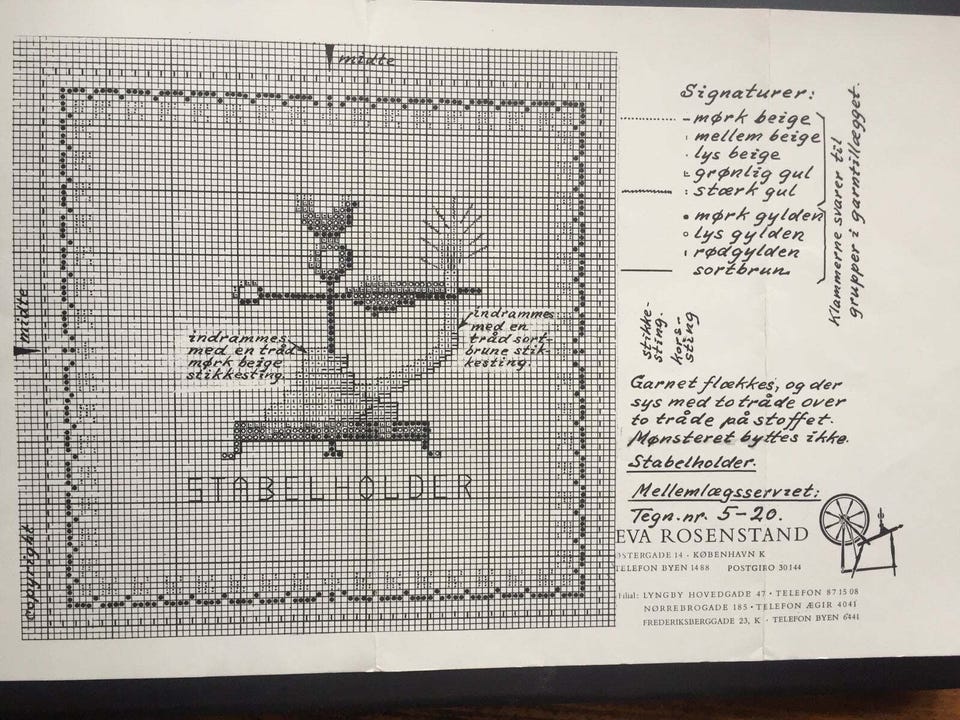 midte
midte
indrammes
med en tråd
mørk beige
stikkesting.
indrammes
med en
tråd sort-
brune stik-
kesting.
STABELHOLDER
copyright
Signaturer:
mørk beige
mellem beige
lys beige
grønlig gul
stærk gul
mørk gylden
lys gylden
rødgylden
sortbrun
Klammerne svarer til
grupper i garntillægget.
stikke-
sting.
kors-
sting
Garnet flækkes, og der
sys med to tråde over
to tråde på stoffet.
Mønsteret byttes ikke.
Stabelholder.
Mellemlægsserviet:
Tegn.nr. 5-20.
EVA ROSENSTAND
ØSTERGADE 14 · KØBENHAVN K
TELEFON BYEN 1488 POSTGIRO 30144
Filial: LYNGBY HOVEDGADE 47 · TELEFON 87 15 08
NØRREBROGADE 185 · TELEFON ÆGIR 4041
FREDERIKSBERGGADE 23, K · TELEFON BYEN 6441